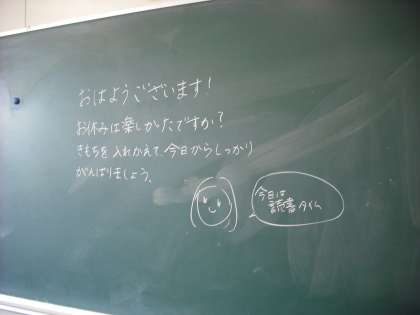 おはようございます!
お休みは楽しかたですか?
きもちを入れかえて、今日からしっかり
がんばりましょう。
今日は
読書タイム